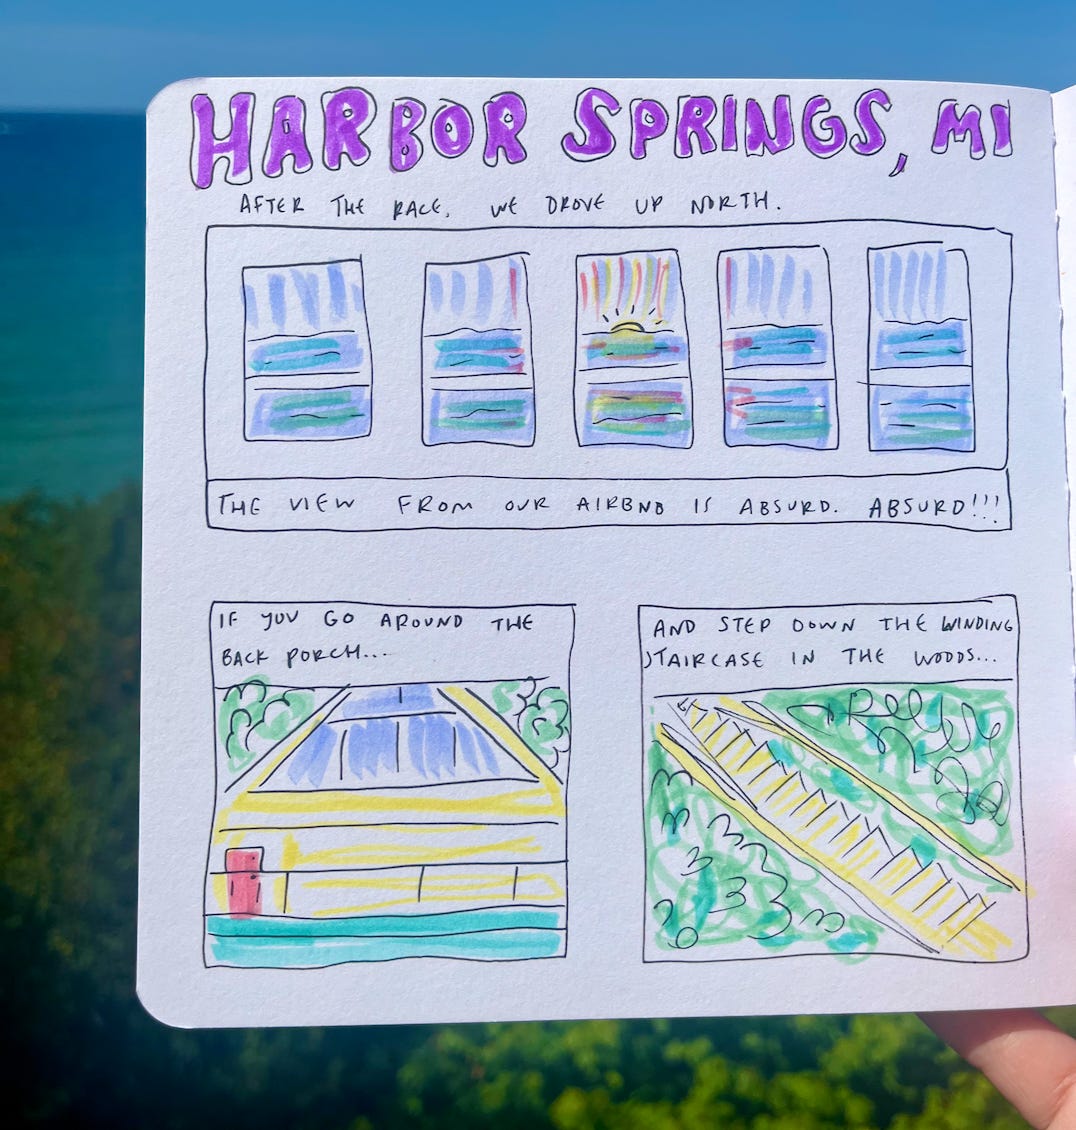 HARBOR SPRINGS, MI
AFTER THE RACE, WE DROVE UP NORTH.
THE VIEW FROM OUR AIRBNB IS ABSURD. ABSURD!!!
IF YOU GO AROUND THE
BACK PORCH...
AND STEP DOWN THE WINDING
STAIRCASE IN THE WOODS...